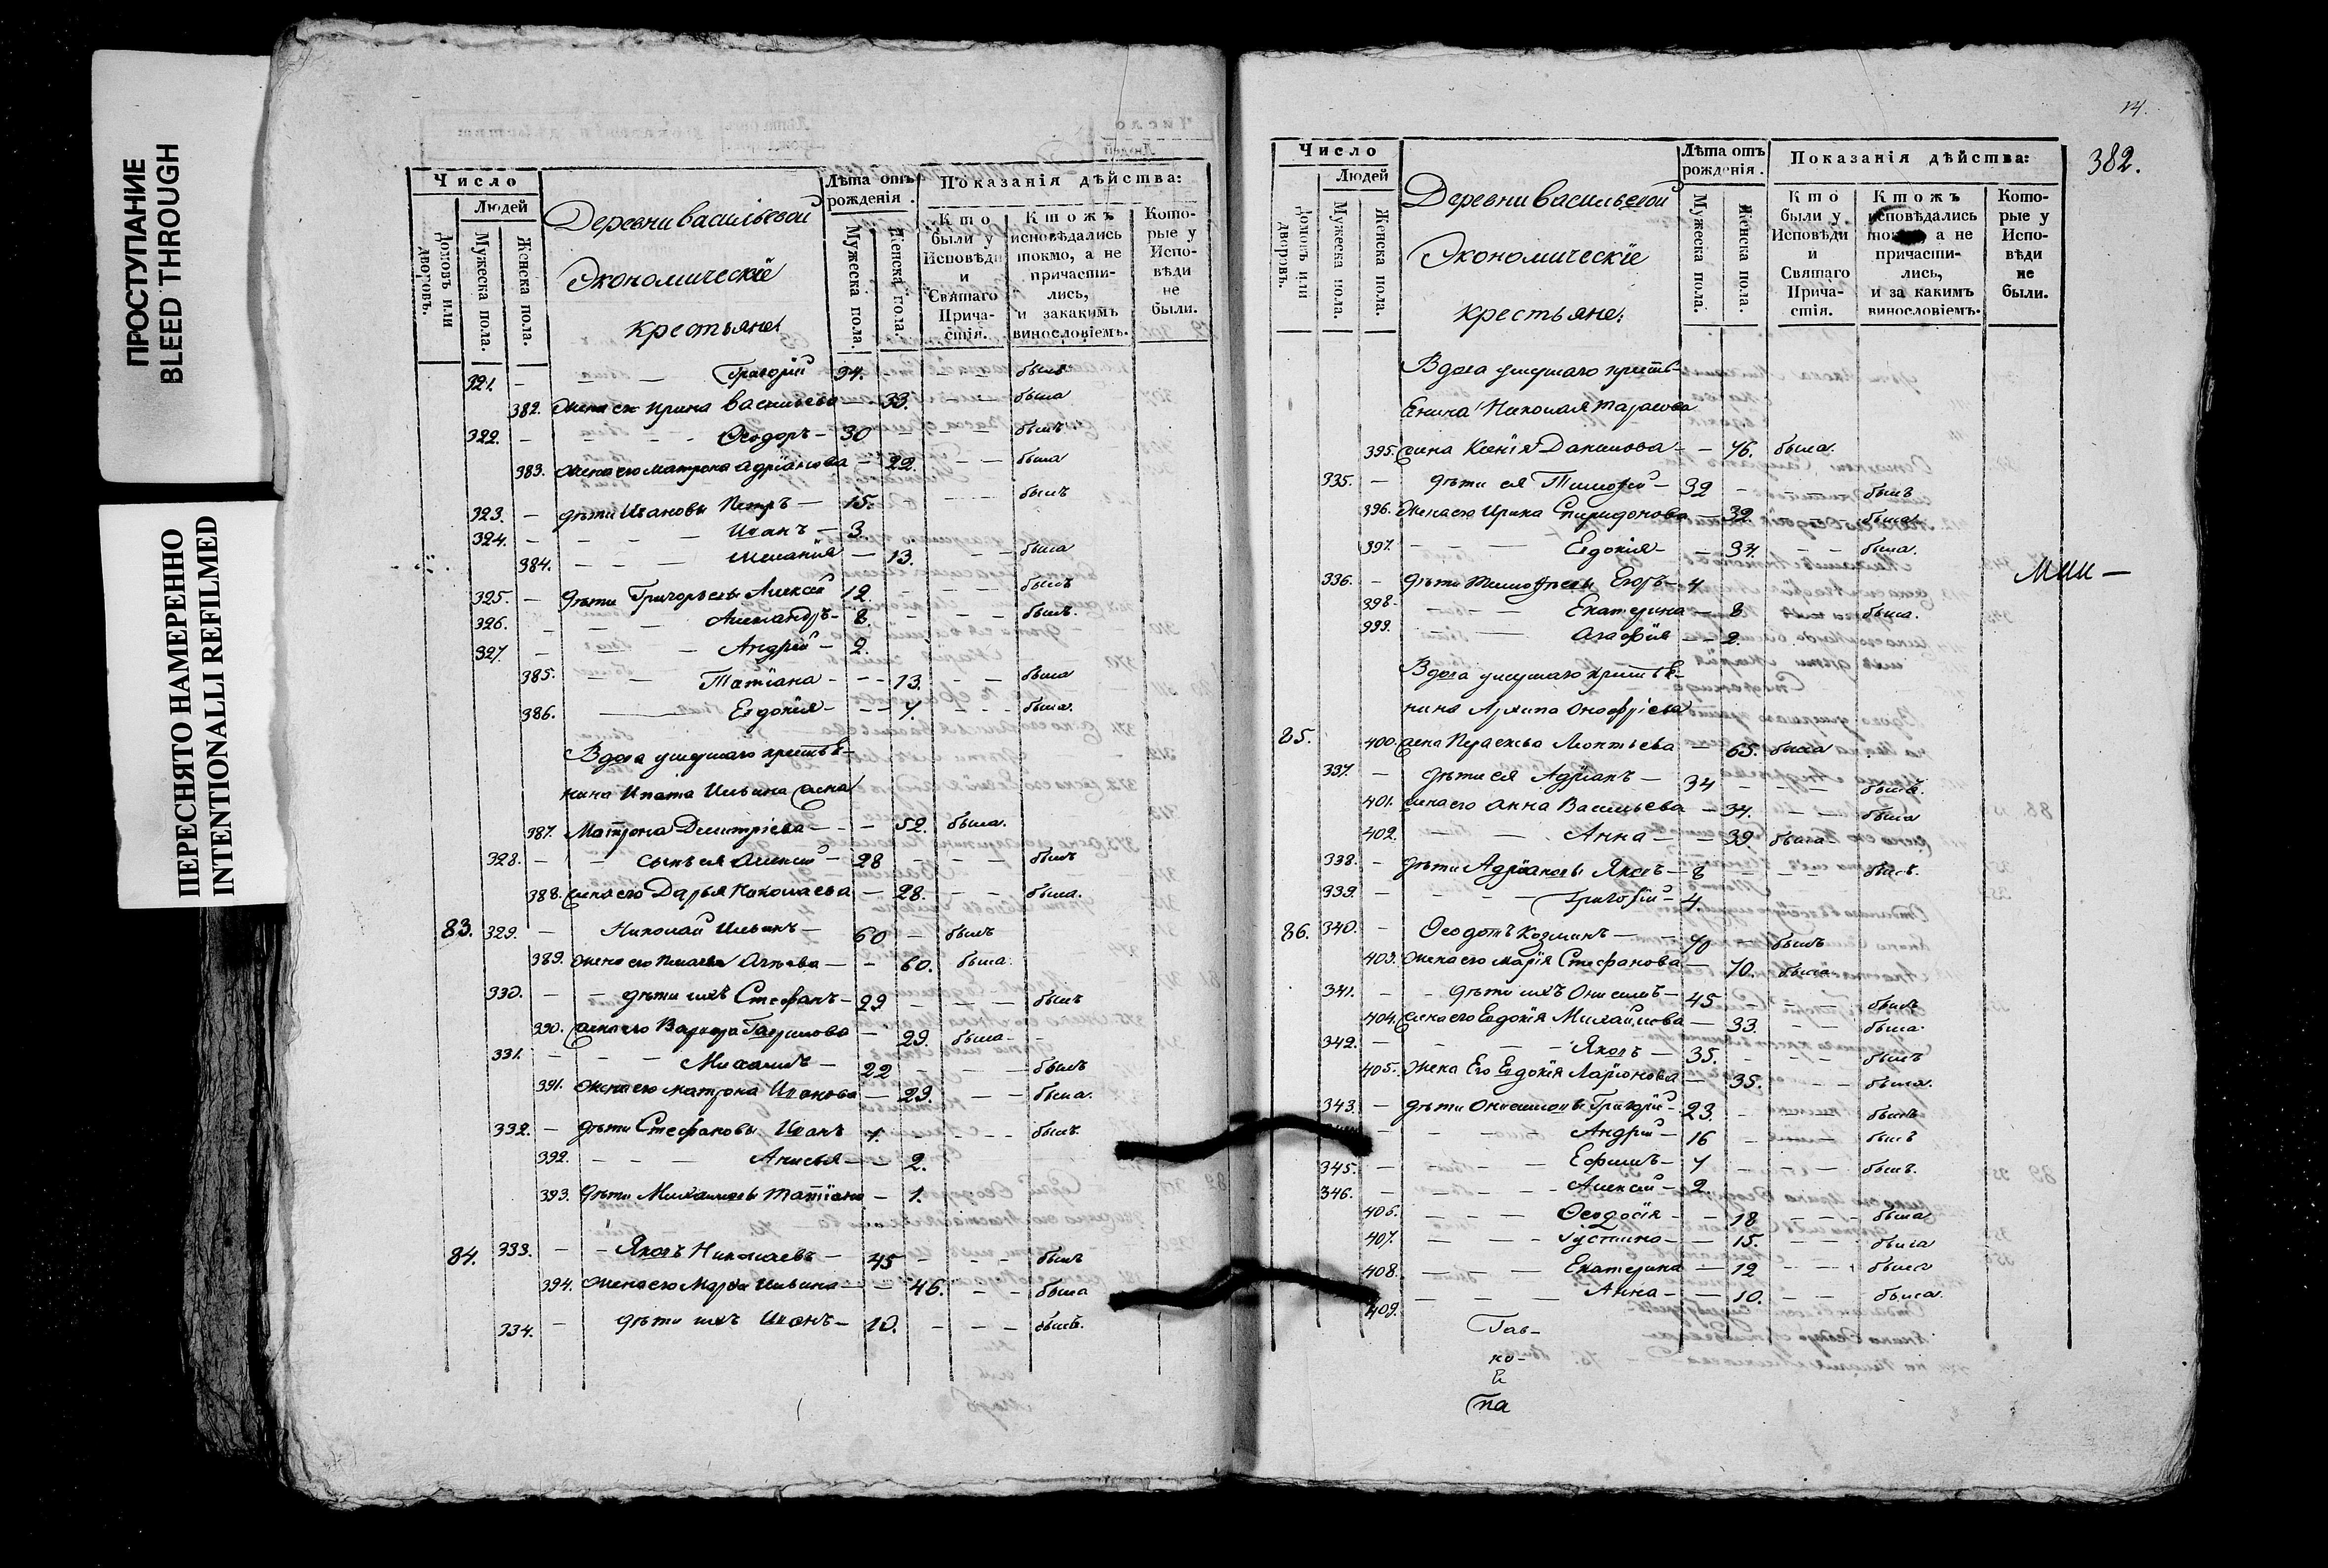 ПРОСТУПАНИЕ
BLEED THROUGH
ПЕРЕСНЯТО НАМЕРЕННО
INTENTIONALLI REFILMED
Число
Людей
Домовъ или дворовъ.
Мужеска пола.
Женска пола.
Деревни Васильевой
Экономическіе
крестьяне
Лѣта отъ рожденія.
Мужеска пола.
Женска пола.
Показанія дѣйства:
Кто были у Исповѣди и Святаго Причастія.
Ктожъ исповѣдались токмо, а не причастились, и закакимъ винословіемъ.
Которые у Исповѣди не были.
321. — — — Григорій 34. — — былъ
382. жена ея Ирина Васильева — 33. — — была
322. — — — Ѳеодоръ — 30 — — — былъ
383. жена его Матрона Адріанова — 22. — — была
323. — дѣти Ивановы Петръ — 15. — — — былъ
324. — — — Иванъ — 3.
384. — — — Меланія — 13. — — была
325. — дѣти Григорьевы Алексѣй 12 — — — былъ
326. — — — Александръ — 8. — — — былъ.
327. — — — Андрей — 2.
385. — — Татіана — — 13. — — была
386. — — Евдокія — — 7. — — была.
Вдова умершаго крестья-
нина Ипата Ильина жена
387. Матрона Димитріева — — 52. была.
328. — — сынъ ея Алексѣй — 28 — — — былъ
388. жена его Дарья Николаева — 28. — — была.
83. 329. — Николай Ильинъ — 60 — былъ
389. жена его — 60. была.
330. — — дѣти ихъ Стефанъ — 29 — — — былъ
390. жена его Варвара Гаврилова — 29. была — —
331. — — — Михаилъ — 22 — — — былъ
391. жена его Матрона Иванова — 29. — — была.
332. — дѣти Стефановы Иванъ — — — былъ.
392. — — — Анисья — — 2.
393. дѣти Михайловы Татіана — 1.
84. 333. — — Яковъ Николаевъ — 45 — — — былъ
394. жена его Марѳа Ильина — — 46. — — была
334. — дѣти ихъ Иванъ — 10. — — — былъ.
14.
382.
Число
Людей
Домовъ или дворовъ.
Мужеска пола.
Женска пола.
Деревни Васильевой
Экономическіе
крестьяне
Лѣта отъ рожденія.
Мужеска пола.
Женска пола.
Показанія дѣйства:
Кто были у Исповѣди и Святаго Причастія.
Ктожъ исповѣдались токмо, а не причастились, и за какимъ винословіемъ.
Которые у Исповѣди не были.
Вдова умершаго кресть-
янина Николая Тарасова
395. жена Ксенія Данилова — — 76. была.
335. — дѣти ея Тимофей — 32 — — — былъ
396. жена его Ирина Спиридонова — 32. — — была.
397. — — — Евдокія — — 37. — — была.
336. — дѣти Тимофеевы Егоръ — 4
398. — — Екатерина — 8 — — была.
399. — — Агафія — — 2.
Вдова умершаго крестья-
нина Архипа Онофріева
85. 400. жена Параскева Леонтьева — 65. была
337. — дѣти ея Адріанъ — 34 — — — былъ.
401. жена его Анна Васильева — 34. — — была
402. — — Анна — — 39 была
338. — дѣти Адріановы Яковъ — 8 — — — былъ.
339. — — — Григорій — 4.
86. 340. — Ѳеодотъ Козминъ — — 70 — былъ
403. жена его Марія Стефанова — 70. была
341. — — дѣти ихъ Онисимъ — 45 — — — былъ
404. жена его Евдокія Михайлова — 33. — — была.
342. — — — Яковъ — 35. — — — былъ
405. жена Его Евдокія Ларіонова — 35. — — была.
343. — дѣти Онисимовы Григорій — 23. — — — былъ
— — — Андрей — 16 — — — былъ
345. — — — Ефимъ — 7 — — — былъ.
346. — — — Алексѣй — 2
406. — — — Ѳеодосія — — 18 — — была
407. — — — Іустина — — 15. — — была
408. — — — Екатерина — 12 — — была
409. — — — Анна — — 10. — — была.
па